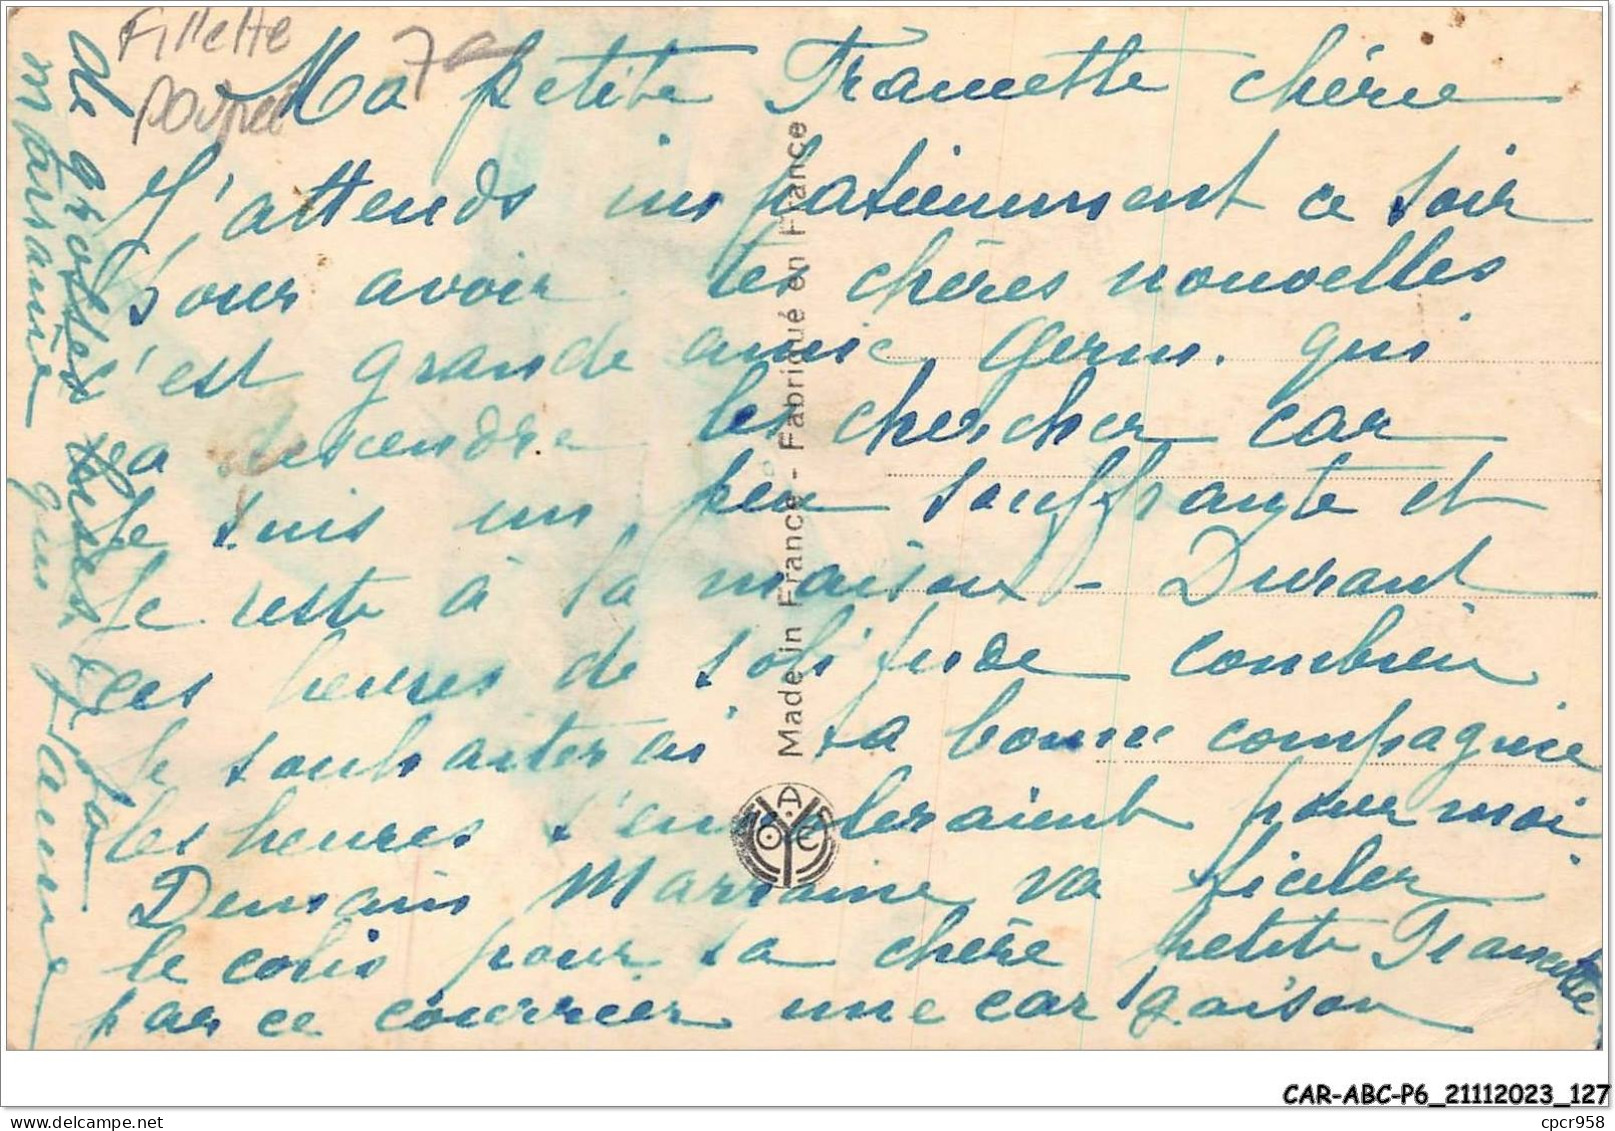 Fillette
poupée
7e
Ma petite Francette chérie
J'attends impatiemment ce soir
pour avoir tes chères nouvelles
c'est grande amie Germ. qui
va descendre les chercher car
je suis un peu souffrante et
je reste à la maison - Durant
ces heures de solitude combien
je souhaiterai ta bonne compagnie
les heures s'envoleraient pour moi
Demain Marraine va ficeler
le colis pour ta chère petite Francette
par ce courrier une cargaison
de grosses bises de ta
marraine qui t'aime
Made in France - Fabriqué en France
CAR-ABC-P6_21112023_127
cpcr958